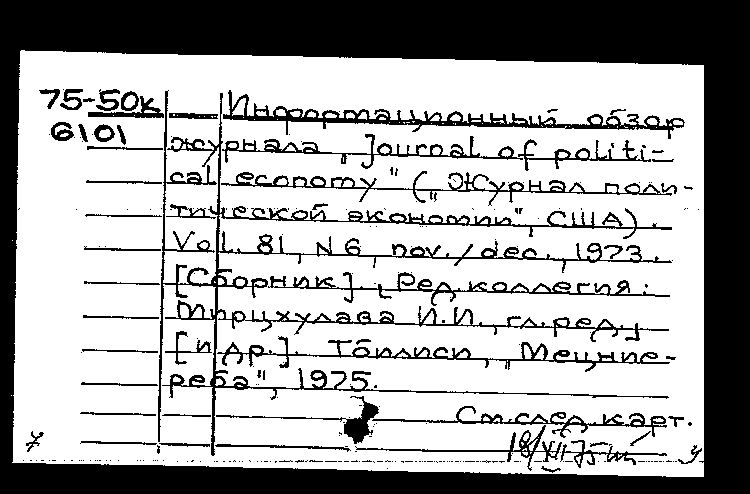 75-50к Информационный обзор
6101 журнала „Journal of politi-
cal economy" („Журнал поли-
тической экономии", США).
Vol. 81, N 6, nov./dec., 1973.
[Сборник]. [Ред.коллегия:
Мирцхулава И.И., гл.ред.]
[и др.]. Тбилиси, „Мецние-
реба", 1975.
См.след.карт.
18/XII 75